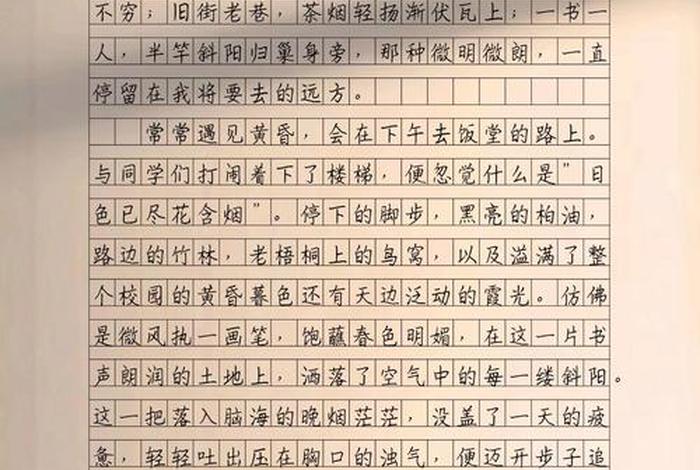 不穷；旧街老巷，茶烟轻扬渐伏瓦上；一书一
人，半竿斜阳归巢身旁，那种微明微朗，一直
停留在我将要去的远方。
常常遇见黄昏，会在下午去饭堂的路上。
与同学们打闹着下了楼梯，便忽觉什么是”日
色已尽花含烟”。停下的脚步，黑亮的柏油，
路边的竹林，老梧桐上的鸟窝，以及溢满了整
个校园的黄昏暮色还有天边泛动的霞光。仿佛
是微风执一画笔，饱蘸春色明媚，在这一片书
声朗润的土地上，洒落了空气中的每一缕斜阳。
这一把落入脑海的晚烟茫茫，没盖了一天的疲
惫，轻轻吐出压在胸口的浊气，便迈开步子追